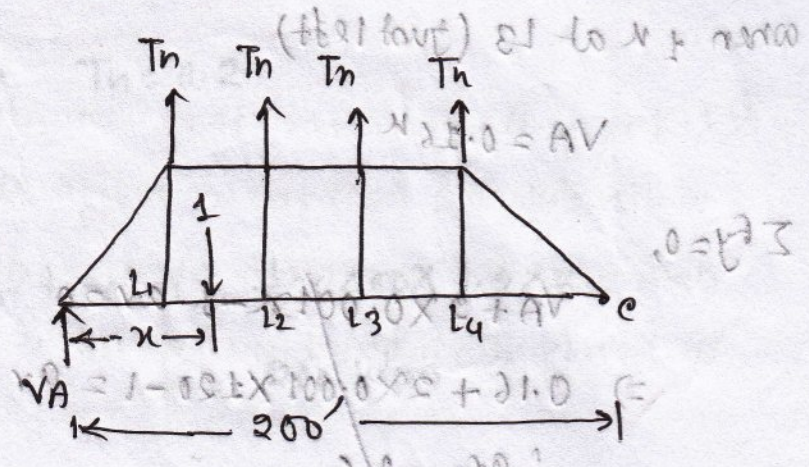 Tn Tn Tn Tn
1
L1 L2 L3 L4 C
x
VA
200'